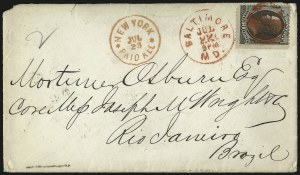 NEW YORK
JUL
PAID ALL
BALTIMORE
JUL
MD.
Mortimer Osburn Esq
Care Mess Joseph M Wright & Co
Rio Janeiro
Brazil